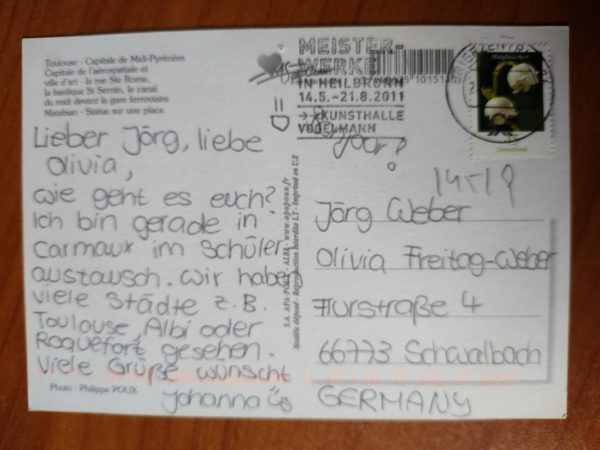 Toulouse - Capitale de Midi-Pyrénées
Capitale de l'aérospatiale et
ville d'art - la rue Ste Rome,
la basilique St Sernin, le canal
du midi devant la gare ferroviaire
Matabiau - Statue sur une place.
MEISTER-
WERKE
IN HEILBRONN
14.5.-21.8.2011
KUNSTHALLE
VOGELMANN
Deutschland
Lieber Jörg, liebe
Olivia,
wie geht es euch?
Ich bin gerade in
Carmaux im Schüler
austausch. Wir haben
viele Städte z.B.
Toulouse Albi oder
Roquefort gesehen.
Viele Grüße wünscht
Johanna
Photo : Philippe POUX
S.A. APA-POUX - ALBI - www.apapoux.fr
Modèle déposé - Reproduction interdite LT - Imprimé en U.E
Jörg Weber
Olivia Freitag-Weber
Flurstraße 4
66773 Schwalbach
GERMANY